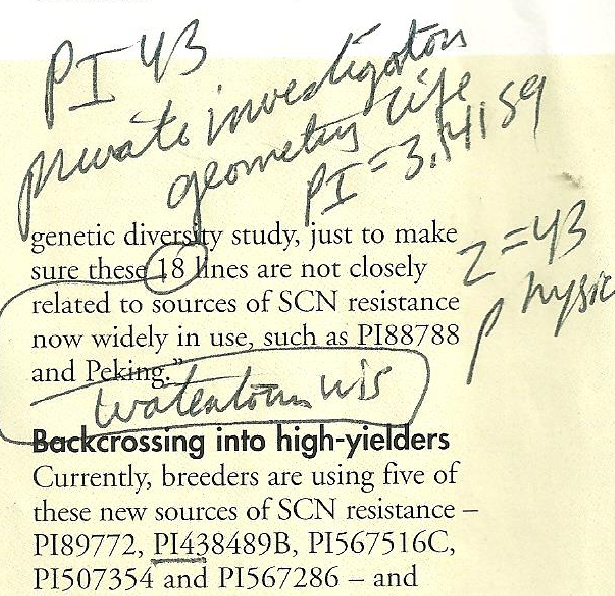 PI 43
private investigators
geometry life
PI = 3.14159
genetic diversity study, just to make
sure these 18 lines are not closely
related to sources of SCN resistance
now widely in use, such as PI88788
and Peking.”
Z = 43
physic
Watertown Wis
Backcrossing into high-yielders
Currently, breeders are using five of
these new sources of SCN resistance –
PI89772, PI438489B, PI567516C,
PI507354 and PI567286 – and